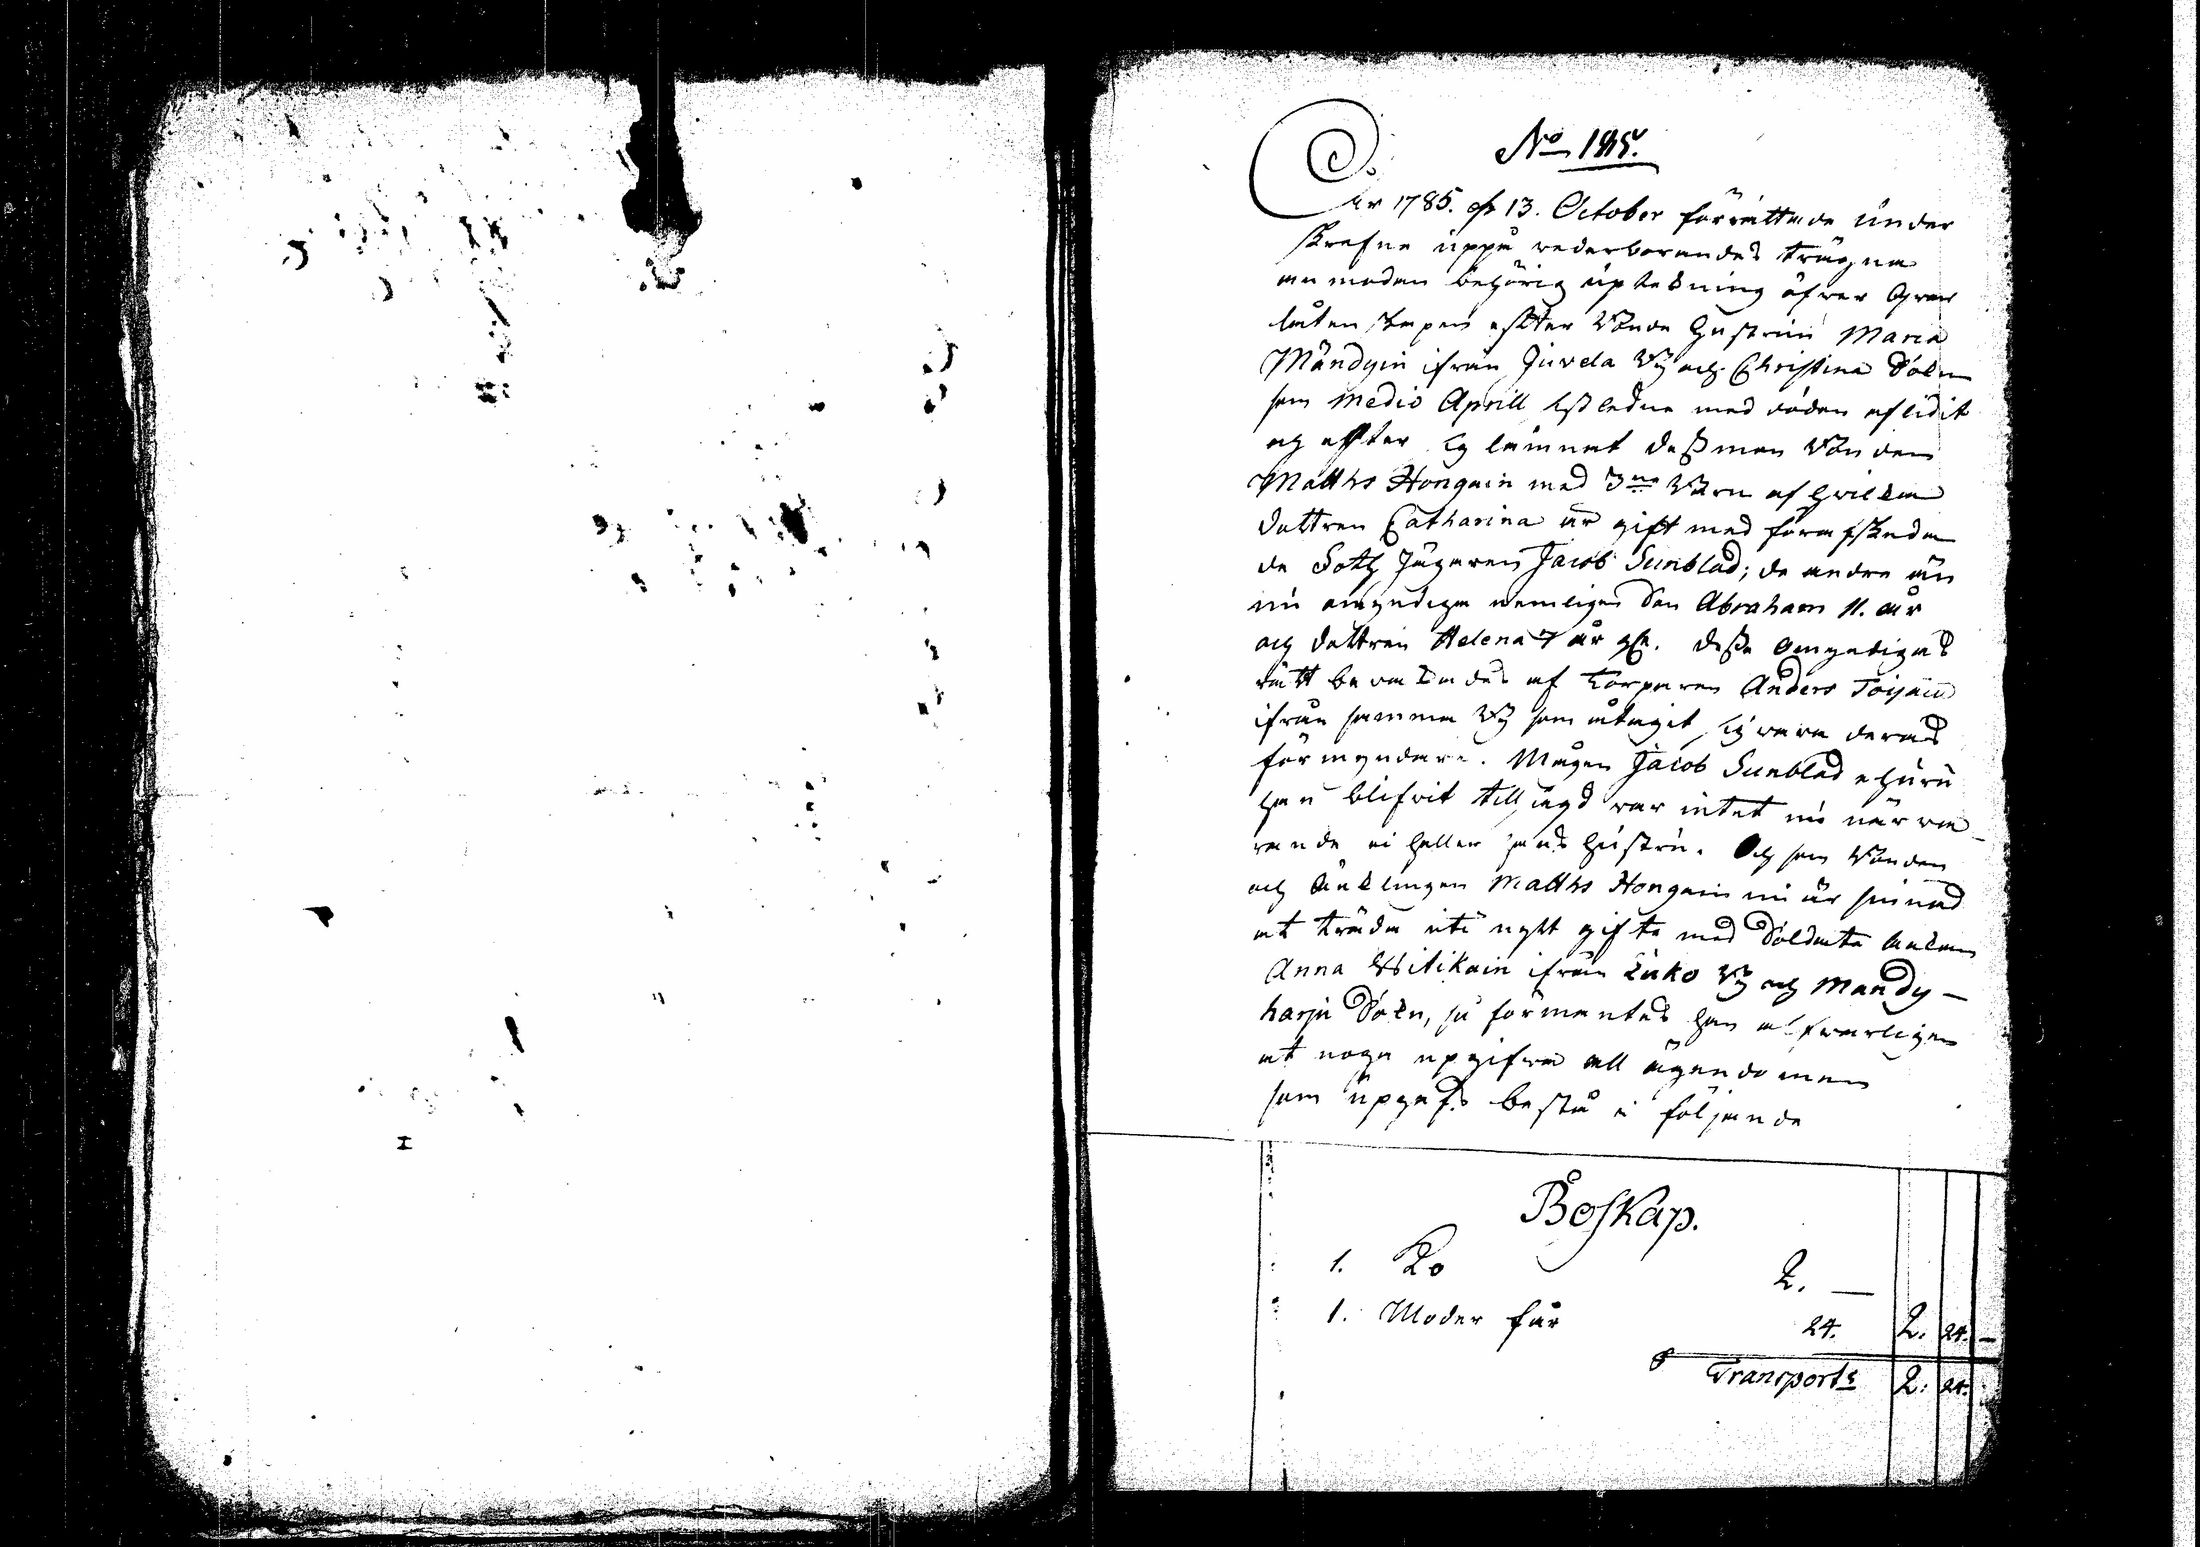 No 185.
År 1785. d. 13. October förrättade under
skrefne uppå vederborandes trägna
anmodan behörig upteckning öfver Qvar
låtenskapen efter Bonde Hustrun Maria
Mändyin ifrån Juvela By och Christina Sokn
som medio Aprill sistledne med döden aflidit
och efter sig lämnat dess man Bonden
Matths Hongain med 3ne Barn af hvilka
dottren Catharina är gift med förafskeda
de Fotjägaren Jacob Sunblad; de andre än
nu omyndiga nemligen Son Abraham 11. år
och dottren Helena 7 år gl. dessa omyndigas
rätt bevakades af Torparen Anders Toijain
ifrån samma By som åtagit sig vara deras
förmyndare. Mågen Jacob Sunblad ehuru
han blifvit tillsagd var intet nu närva
rande ei heller hans hustru. Och som Bonden
och Änklingen Matths Hongain nu är sinnad
at träda uti nytt gifte med Soldate Enkan
Anna Witikain ifrån Luko By och Mandy-
harju Sokn, så förmantes han alfvarligen
at noga upgifva all ägendomen
som upgafs bestå i följande
Boskap.
1. Ko 2. —
1. Moder får 24. 2. 24. —
Transport 2. 24.